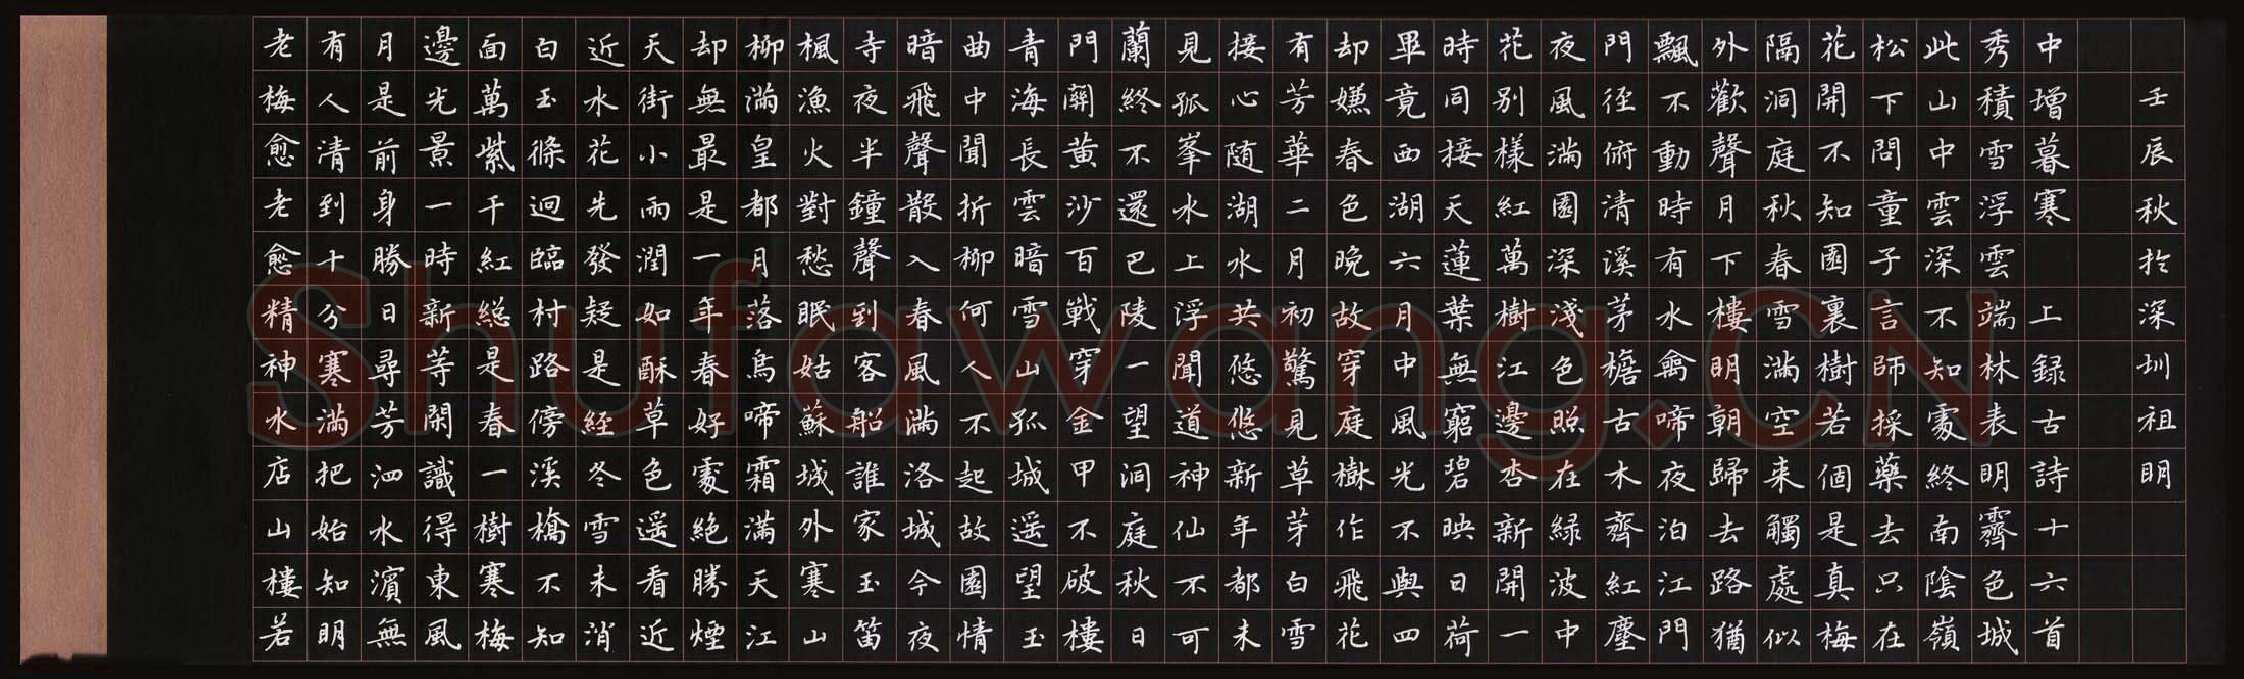 老梅愈老愈精神水店山樓若
有人清到十分寒滿把始知明
月是前身勝日尋芳泗水濱無
邊光景一時新等閑識得東風
面萬紫千紅總是春一樹寒梅
白玉條迥臨村路傍溪橋不知
近水花先發疑是經冬雪未消
天街小雨潤如酥草色遥看近
却無最是一年春好處絕勝煙
柳滿皇都月落烏啼霜滿天江
楓漁火對愁眠姑蘇城外寒山
寺夜半鐘聲到客船誰家玉笛
暗飛聲散入春風滿洛城今夜
曲中聞折柳何人不起故園情
青海長雲暗雪山孤城遥望玉
門關黃沙百戰穿金甲不破樓
蘭終不還巴陵一望洞庭秋日
見孤峯水上浮聞道神仙不可
接心随湖水共悠悠新年都未
有芳華二月初驚見草芽白雪
却嫌春色晚故穿庭樹作飛花
畢竟西湖六月中風光不與四
時同接天蓮葉無窮碧映日荷
花别樣紅萬樹江邊杏新開一
夜風滿園深淺色照在綠波中
門徑俯清溪茅檐古木齊紅塵
飄不動時有水禽啼夜泊江門
外歡聲月下樓明朝歸去路猶
隔洞庭秋春雪滿空来觸處似
花開不知園裏樹若個是真梅
松下問童子言師採藥去只在
此山中雲深不知處終南陰嶺
秀積雪浮雲端林表明霽色城
中增暮寒 上録古詩十六首
壬辰秋於深圳祖明
Shufawang.CN